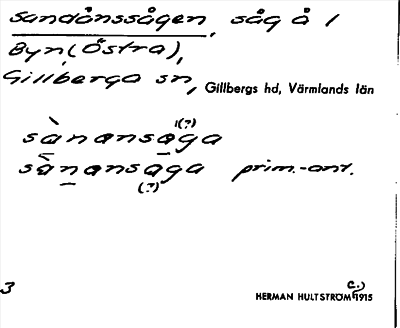 Sandånssågen, såg å 1
Byn (Östra),
Gillberga sn, Gillbergs hd, Värmlands län
1(?)
sànansaga
sànansaga prim.-ant.
(?)
3
c.)
HERMAN HULTSTRÖM 1915